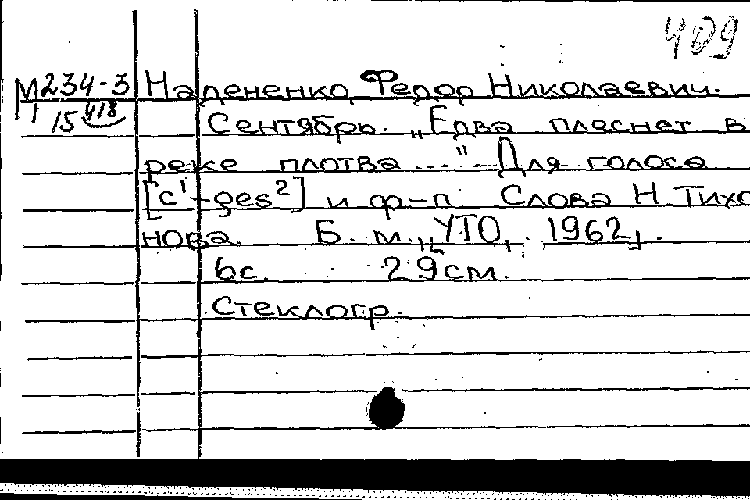 409
М 234-3 Надененко, Федор Николаевич.
15 418
Сентябрь. „Едва плеснет в
реке плотва...." Для голоса
[c¹-ges²] и ф-п. Слова Н. Тихо
нова. Б. м., УТО, [1962].
6с. 29см.
Стеклогр.